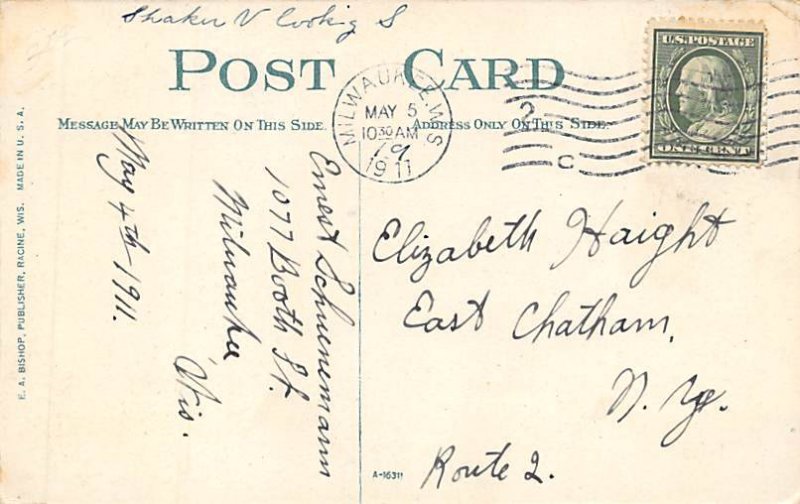 Shaker V looking S
POST CARD
MESSAGE MAY BE WRITTEN ON THIS SIDE.
ADDRESS ONLY ON THIS SIDE.
MILWAUKEE, WIS
MAY 5
10 30 AM
1911
2
C
U.S. POSTAGE
ONE CENT
May 4th 1911.
Ernest Schuenemann
1077 Booth St.
Milwaukee
Wis.
Elizabeth Haight
East Chatham,
N. Y.
Route 2.
E. A. BISHOP, PUBLISHER, RACINE, WIS. MADE IN U. S. A.
A-16311